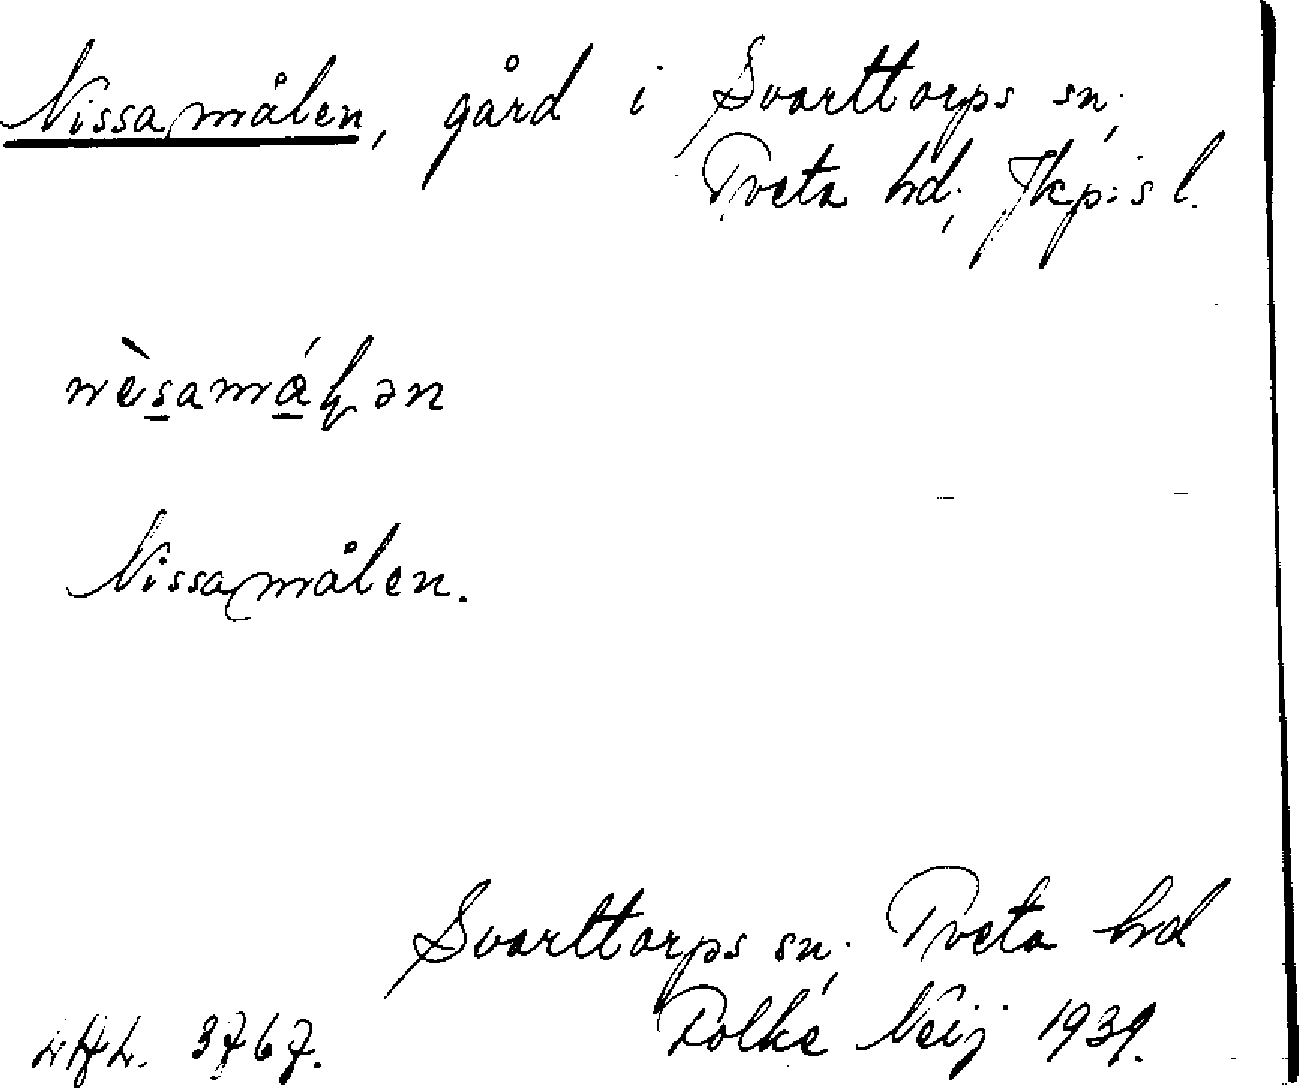 Nissamålen, gård i Svarttorps sn;
Tveta hd; Jkp:s l.
nèsamáɬən
Nissamålen.
Svarttorps sn; Tveta hd
Folke Neij 1939.
3767.